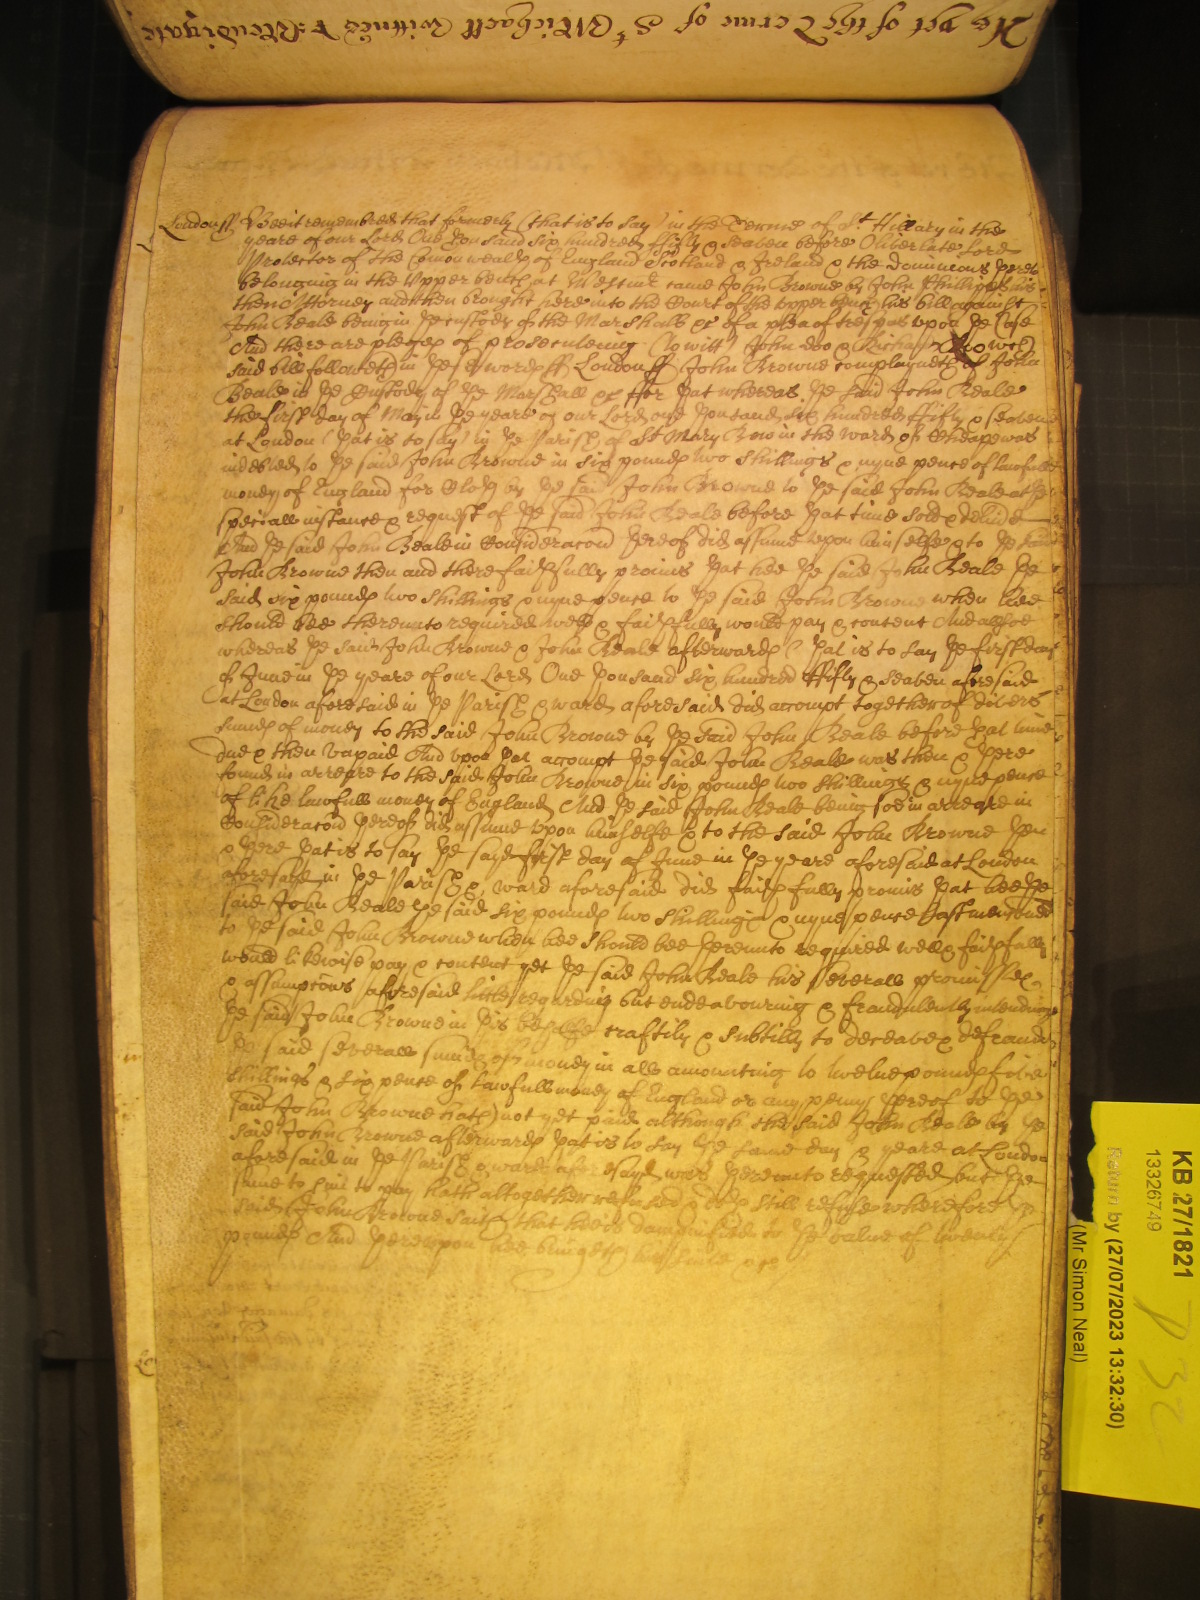 As yet of the Terme of St Michaell Wittnes R: Newdigate
Londonss Bee it remembred that formerly (that is to say) in the Terme of St Hillary in the
yeare of our Lord One thousand six hundred fifty & seaven before Oliver late Lord
Protector of the Comonwealth of England Scotland & Ireland & the dominions thereto
belonging in the Upper bench at Westmr came John Browne by John Phillipps his
then Attorney and then brought here into the Court of the upper bench his bill against
John Beale being in the custody of the Marshall &c of a plea of trespas upon the Case
And there are pledges of prosecuteing (to witt) John doo & Richard Roo wch
said bill followeth in these words ss Londonss John Browne complayneth of John
Beale in the Custody of the Marshall &c ffor that whereas the said John Beale
the first day of May in the yeare of our Lord one thousand six hundred ffifty & seaven
at London (that is to say) in the Parish of St Mary Bow in the ward of Cheape was
indebted to the said John Browne in six pounds two shillings & nyne pence of lawfull
money of England for Cloth by the said John Browne to the said John Beale at the
speciall instance & request of the said John Beale before that time sold & delivd
And the said John Beale in Consideracon thereof did assume upon himselfe & to the said
John Browne then and there faithfully promis that hee the said John Beale the
said six pounds two shillings & nyne pence to the said John Browne when hee
should bee thereunto required well & faithfully would pay & content And alsoe
whereas the said John Browne & John Beale afterwards (that is to say the first day
of June in the yeare of our Lord One thousand six hundred ffifty & seaven aforesaid
at London aforesaid in the Parish & ward aforesaid did accompt together of divers
summs of money to the said John Browne by the said John Beale before that time
due & then unpaid And upon that accompt the said John Beale was then & there
found in arreare to the said John Browne in six pounds two shillings & nyne pence
of like lawfull money of England And the said John Beale being soe in arreare in
Consideracon thereof did assume upon himselfe & to the said John Browne then
& there that is to say the said first day of June in the yeare aforesaid at London
aforesaid in the Parish & ward aforesaid did faithfully promis that hee the
said John Beale the said six pounds two shillings & nyne pence last mentioned
to the said John Browne when hee should bee thereunto required well & faithfully
would likewise pay & content yet the said John Beale his severall promisses
& assumptions aforesaid little regarding but endeavouring & fraudulently intending
the said John Browne in this behalfe craftily & subtilly to deceave & defraud
the said severall summs of money in all amounting to twelve pounds five
shillings & six pence of lawfull money of England or any penny thereof to the
said John Browne hath not yet paid although the said John Beale by the
said John Browne afterwards that is to say the same day & yeare at London
aforesaid in the Parish & ward aforesayd was thereunto requested but the
same to him to pay hath altogether refused & doth still refuse wherefore the
said John Browne saith that hee is damnified to the value of twenty
pounds And thereupon hee bringeth his suite &c
KB 27/1821
13326749
Return by (27/07/2023 13:32:30)
(Mr Simon Neal)